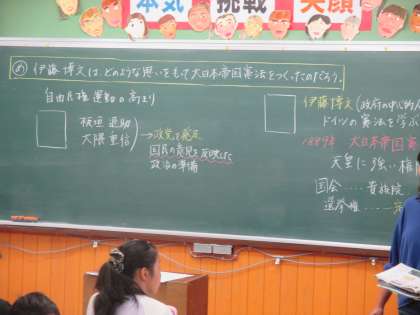 本気 挑戦 笑顔
め 伊藤博文は、どのような思いをもって大日本帝国憲法をつくったのだろう。
自由民権運動の高まり
板垣退助
大隈重信
→政党を発足
国民の意見を反映した
政治の準備
伊藤博文(政府の中心的
ドイツの憲法を学ぶ
1889年 大日本帝国憲
天皇に強い権
国会……貴族院
選挙権……一定